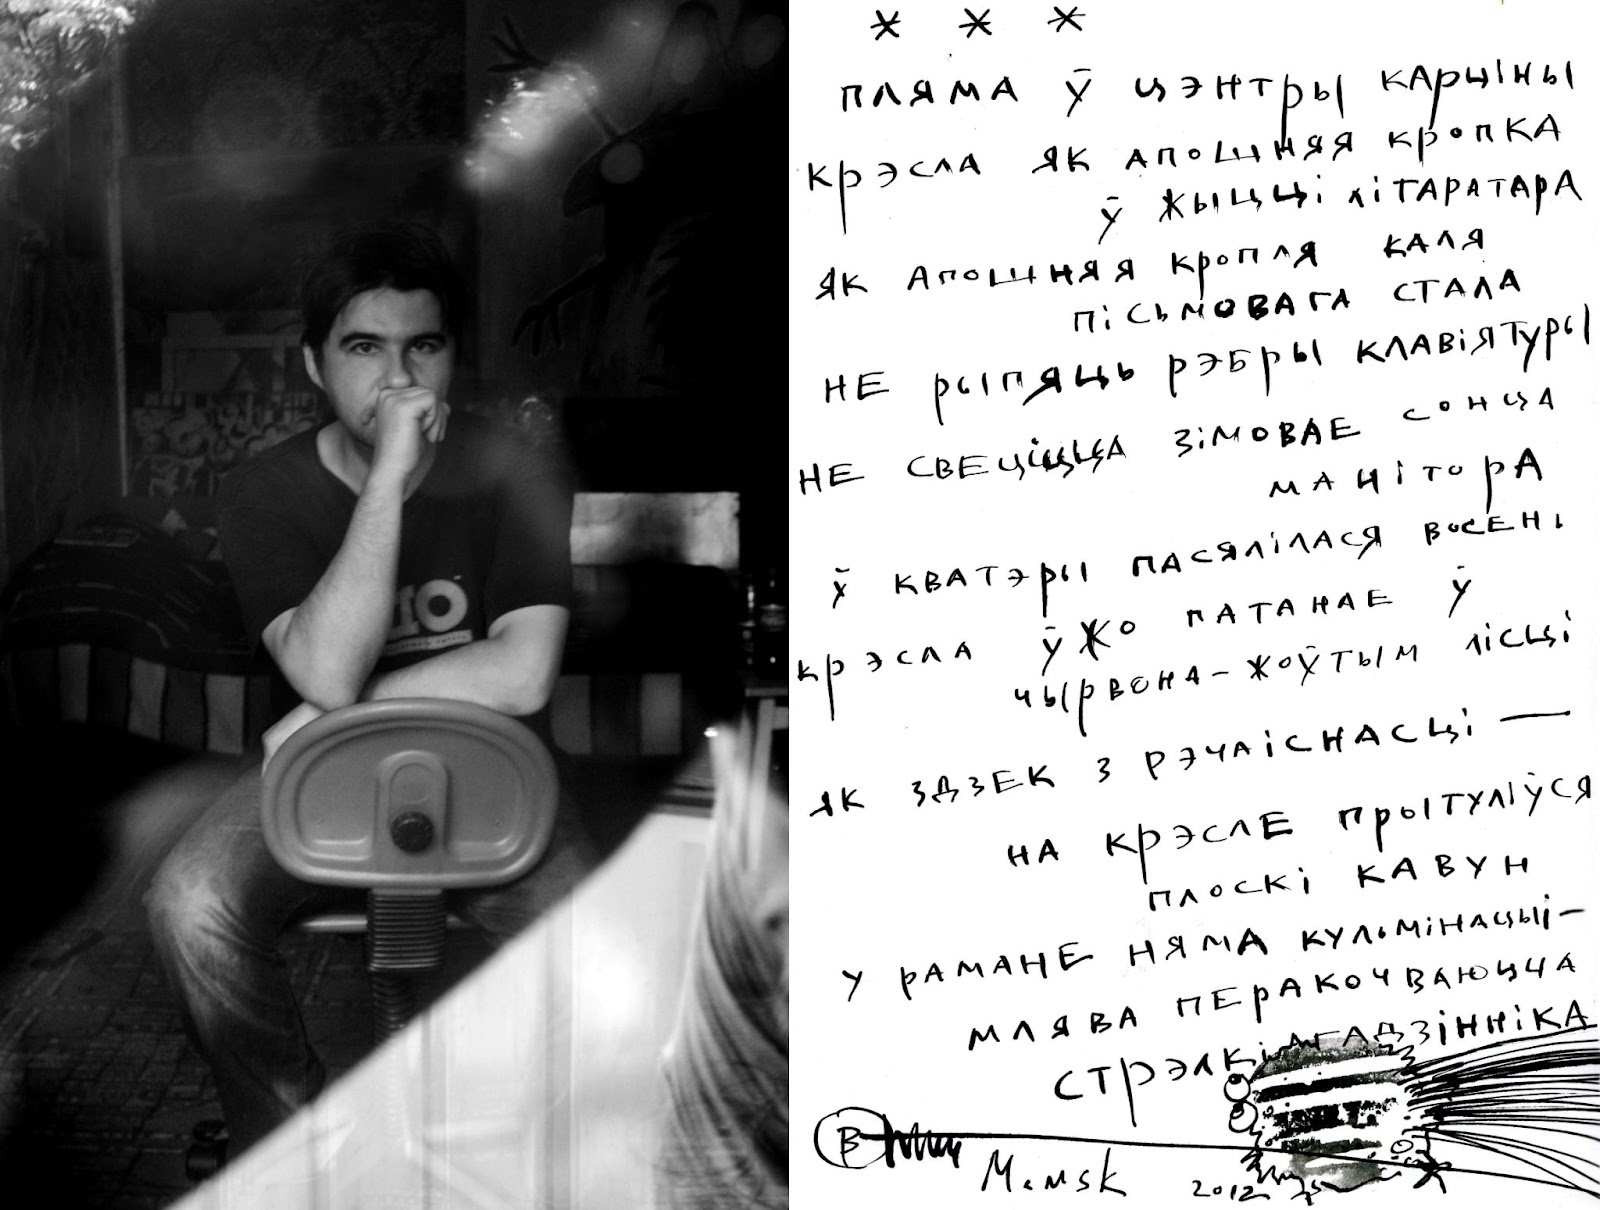 * * *
ПЛЯМА Ў ЦЭНТРЫ КАРЦІНЫ
КРЭСЛА ЯК АПОШНЯЯ КРОПКА
Ў ЖЫЦЦІ ЛІТАРАТАРА
ЯК АПОШНЯЯ КРОПЛЯ КАЛЯ
ПІСЬМОВАГА СТАЛА
НЕ РЫПЯЦЬ РЭБРЫ КЛАВІЯТУРЫ
НЕ СВЕЦІЦЦА ЗІМОВАЕ СОНЦА
МАНІТОРА
Ў КВАТЭРЫ ПАСЯЛІЛАСЯ ВОСЕНЬ
КРЭСЛА ЎЖО ПАТАНАЕ Ў
ЧЫРВОНА-ЖОЎТЫМ ЛІСЦІ
ЯК ЗДЗЕК З РЭЧАІСНАСЦІ —
НА КРЭСЛЕ ПРЫТУЛІЎСЯ
ПЛОСКІ КАВУН
У РАМАНЕ НЯМА КУЛЬМІНАЦЫІ —
МЛЯВА ПЕРАКОЧВАЮЦЦА
СТРЭЛКІ ГАДЗІННІКА
В
2012